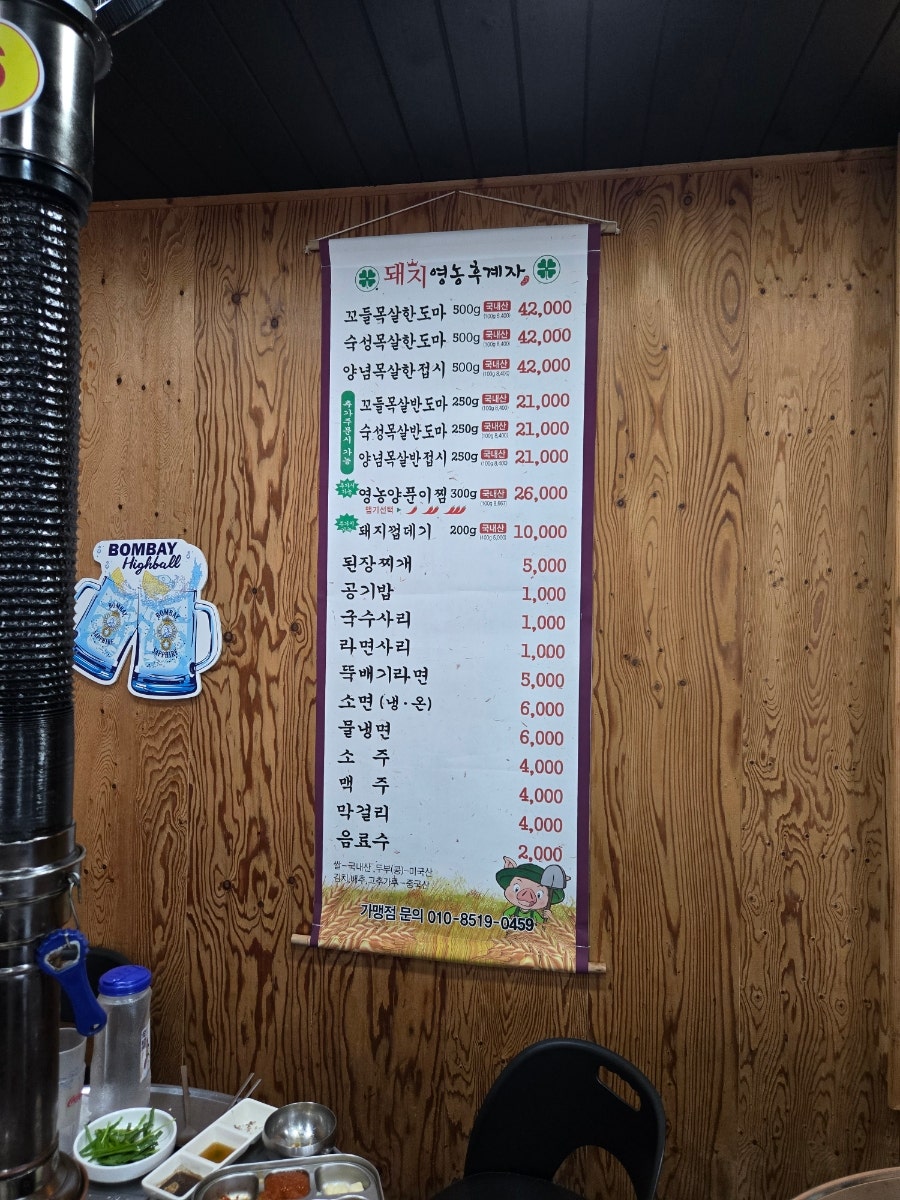 돼지영농후계자
꼬들목살한도마 500g 국내산 (100g 8,400) 42,000
숙성목살한도마 500g 국내산 (100g 8,400) 42,000
양념목살한접시 500g 국내산 (100g 8,400) 42,000
추가주문시 가능
꼬들목살반도마 250g 국내산 (100g 8,400) 21,000
숙성목살반도마 250g 국내산 (100g 8,400) 21,000
양념목살반접시 250g 국내산 (100g 8,400) 21,000
영농양푼이찜 300g 국내산 26,000
맵기선택 ▶
돼지껍데기 200g 국내산 (100g 5,000) 10,000
된장찌개 5,000
공기밥 1,000
국수사리 1,000
라면사리 1,000
뚝배기라면 5,000
소면 (냉·온) 6,000
물냉면 6,000
소 주 4,000
맥 주 4,000
막걸리 4,000
음료수 2,000
쌀-국내산, 두부(콩)-미국산
김치,배추,고추가루-중국산
가맹점 문의 010-8519-0459
BOMBAY
Highball
BOMBAY
SAPPHIRE
BOMBAY
SAPPHIRE